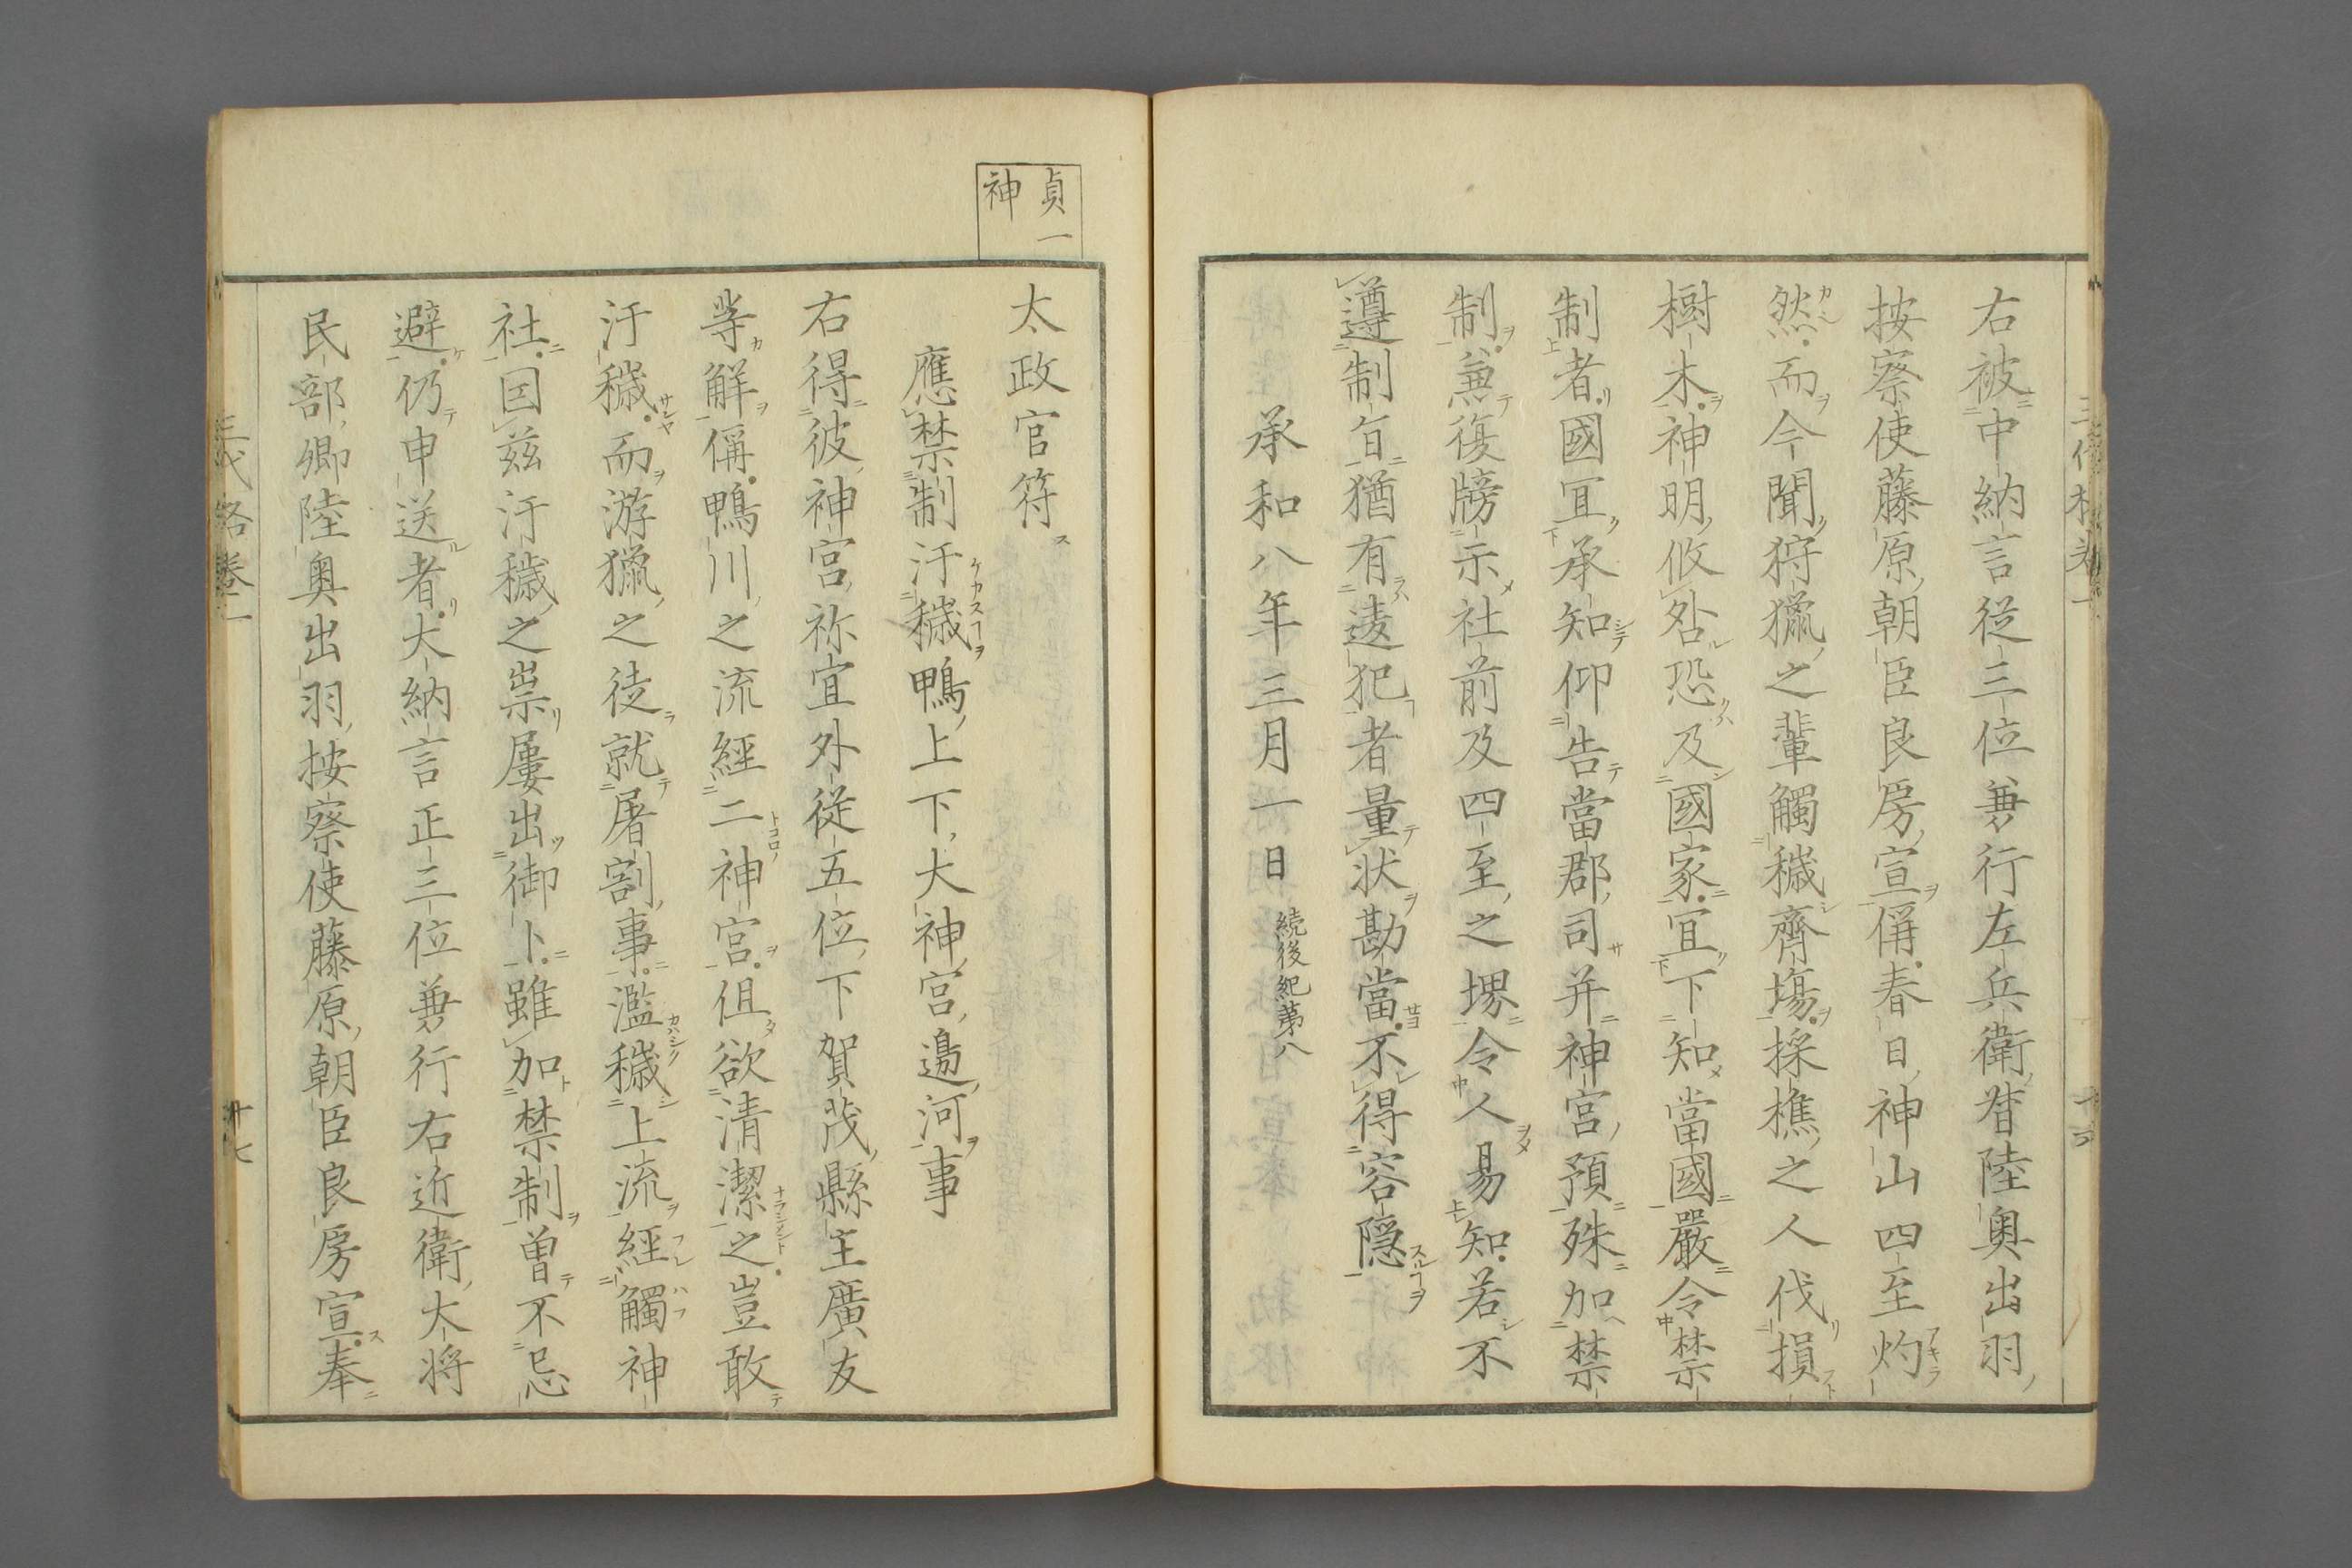 右被中納言従三位兼行左兵衛督陸奥出羽
按察使藤原朝臣良房宣偁春日神山四至灼
然而今聞狩獵之輩觸穢齊場採樵之人伐損
樹木神明攸咎恐及國家冝下知當國嚴令禁
制者國冝承知仰告當郡司并神宮預殊加禁
制兼復牓示社前及四至之堺令人易知若不
遵制旨猶有違犯者量状勘當不得容隠
承和八年三月一日 続後紀第八
貞一
神
太政官符
應禁制汙穢鴨上下大神宮邉河事
右得彼神宮祢宜外従五位下賀茂縣主廣友
等解偁鴨川之流經二神宮但欲清潔之豈敢
汙穢而游獵之徒就屠割事濫穢上流經觸神
社因茲汙穢之祟屢出御卜雖加禁制曽不忌
避仍申送者大納言正三位兼行右近衛大将
民部卿陸奥出羽按察使藤原朝臣良房宣奉
三代格卷一
十七